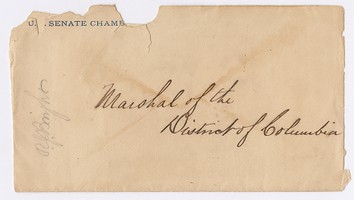 SENATE CHAMB
Marshal of the
District of Columbia